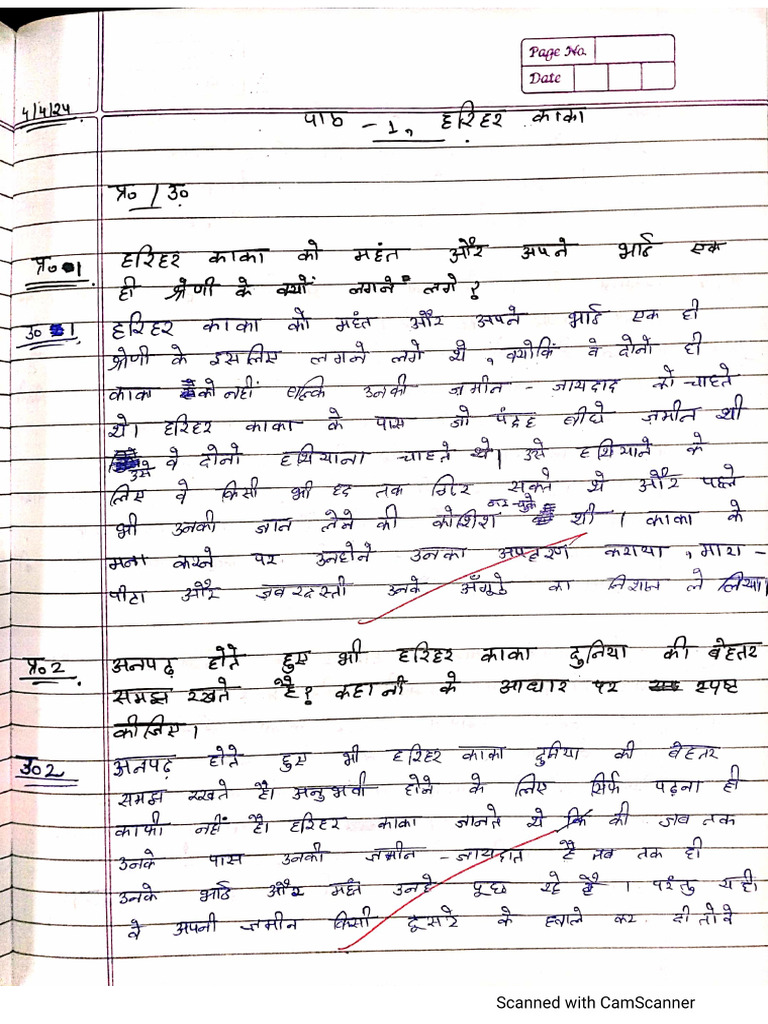 Page No.
Date
4/4/24
पाठ - 1, हरिहर काका
प्र० / उ०
प्र० 1 हरिहर काका को महंत और अपने भाई एक
ही श्रेणी के क्यों लगने लगे?
उ० 1 हरिहर काका को महंत और अपने भाई एक ही
श्रेणी के इसलिए लगने लगे थे, क्योकिं वे दोनो ही
काका को नहीं बल्कि उनकी ज़मीन - जायदाद को चाहते
थे। हरिहर काका के पास जो पंद्रह बीघे ज़मीन थी
उसे वे दोनो हथियाना चाहते थे। उसे हथियाने के
लिए वे किसी भी हद तक गिर सकते थे और पहले
भी उनकी जान लेने की कोशिश कर चुके थी। काका के
मना करने पर उनहोने उनका अपहरण कराया, मारा -
पीटा और ज़बरदस्ती उनके अँगूठे का निशान ले लिया।
प्र० 2 अनपढ़ होते हुए भी हरिहर काका दुनिया की बेहतर
समझ रखते है? कहानी के आधार पर स्पष्ट
कीजिए।
उ० 2 अनपढ़ होते हुए भी हरिहर काका दुनिया की बेहतर
समझ रखते है। अनुभवी होने के लिए सिर्फ पढ़ना ही
काफी नहीं है। हरिहर काका जानते थे की जब तक
उनके पास उनकी ज़मीन - जायदात है तब तक ही
उनके भाई और महंत उनहे पूछ रहे है। परंतु यही
वे अपनी ज़मीन किसी दूसरे के हवाले कर दी तो वे
Scanned with CamScanner